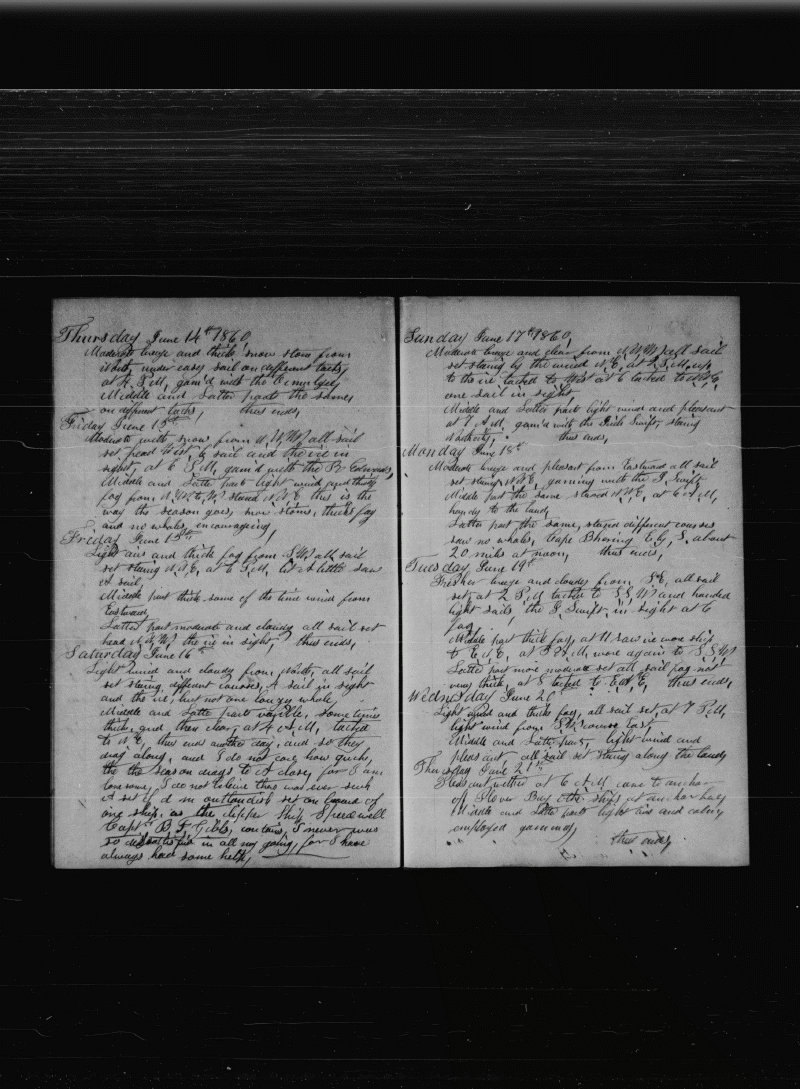 Thursday June 14th 1860,
Moderate breeze and thick, snow storm from
West, under easy sail on different tacks,
at 4, P.M, gam'd with the
Middle and Latter parts the same,
on different tacks, thus ends,
Friday June 15th
Moderate with snow from N,W,W, all sail
set, head West, 6 sail and the ice in
sight, at 6 P.M, gam'd with the
Middle and Latte part light wind and thick
fog from stood N.N.E this is the
way the season goes, snow storms, thick fog
and no whales, encouraging,
Friday June 15th
Light airs and thick fog from S.W, all sail
set string N.N.E, at 6 P.M, let A little saw
A sail,
Middle part thick some of the time wind from
Eastward,
Latter part moderate and cloudy all sail set
head N,N,W, the ice in sight, thus ends,
Saturday June 16th
Light wind and cloudy from South, all sail
set string different courses, A sail in sight
and the ice, but not one longer whale,
Middle and Latte parts some times
thick, and then clear, at 4 A.M, tacked
to N.E, thus ends another day, and so they
drag along, and I do not care how quick
the the season drags to A close, for I am
lonesome, I do not believe there was ever such
A set of d m outlandish set on board of
one ship, as the clipper ship Speedwell
Capt B F Gibbs, contains, I never was
so in all my going, for I have
always had some help,
Sunday June 17th 1860,
Moderate breeze and clear from N,W,W, all sail
set string by the wind N.E, at P.M, up
to the ice, tacked to West at 6 tacked to
one sail in sight
Middle and Latte part light wind and pleasant
at 7 A.M, gam'd with the Ship Swift string
thus ends,
Monday June 18th
Moderate breeze and pleasant from Eastward all sail
set string N.N.E, gaming with the J, Swift
Middle part the same stood N.N.E, at 6 A.M,
handy to the land
Latter part the same, string different courses
saw no whales, Cape E by S, about
20 miles at noon, thus ends,
Tuesday June 19th
Fresher breeze and cloudy from S.E, all sail
set, at 2 P.M tacked to S,S,W, and handed
light sails, the J, Swift, in sight at 6
fog,
Middle part thick fog, at 11 saw ice wore ship
to E,N,E, at A.M, wore again to S,S,W
Latte part more moderate set all sail fog not
very thick, at 8 tacked to E,N,E, thus ends,
Wednesday June 20
Light wind and thick fog, all sail set, at 7 P.M,
light wind from course East
Middle and Latte part, light wind and
pleasant all sail set string along the land
Thursday June 21st
Pleasant wether at 6 A.M, came to anchor
off Plover Bay ships at anchor
Middle and Latte parts light airs and calm,
employed gaming,
thus ends,